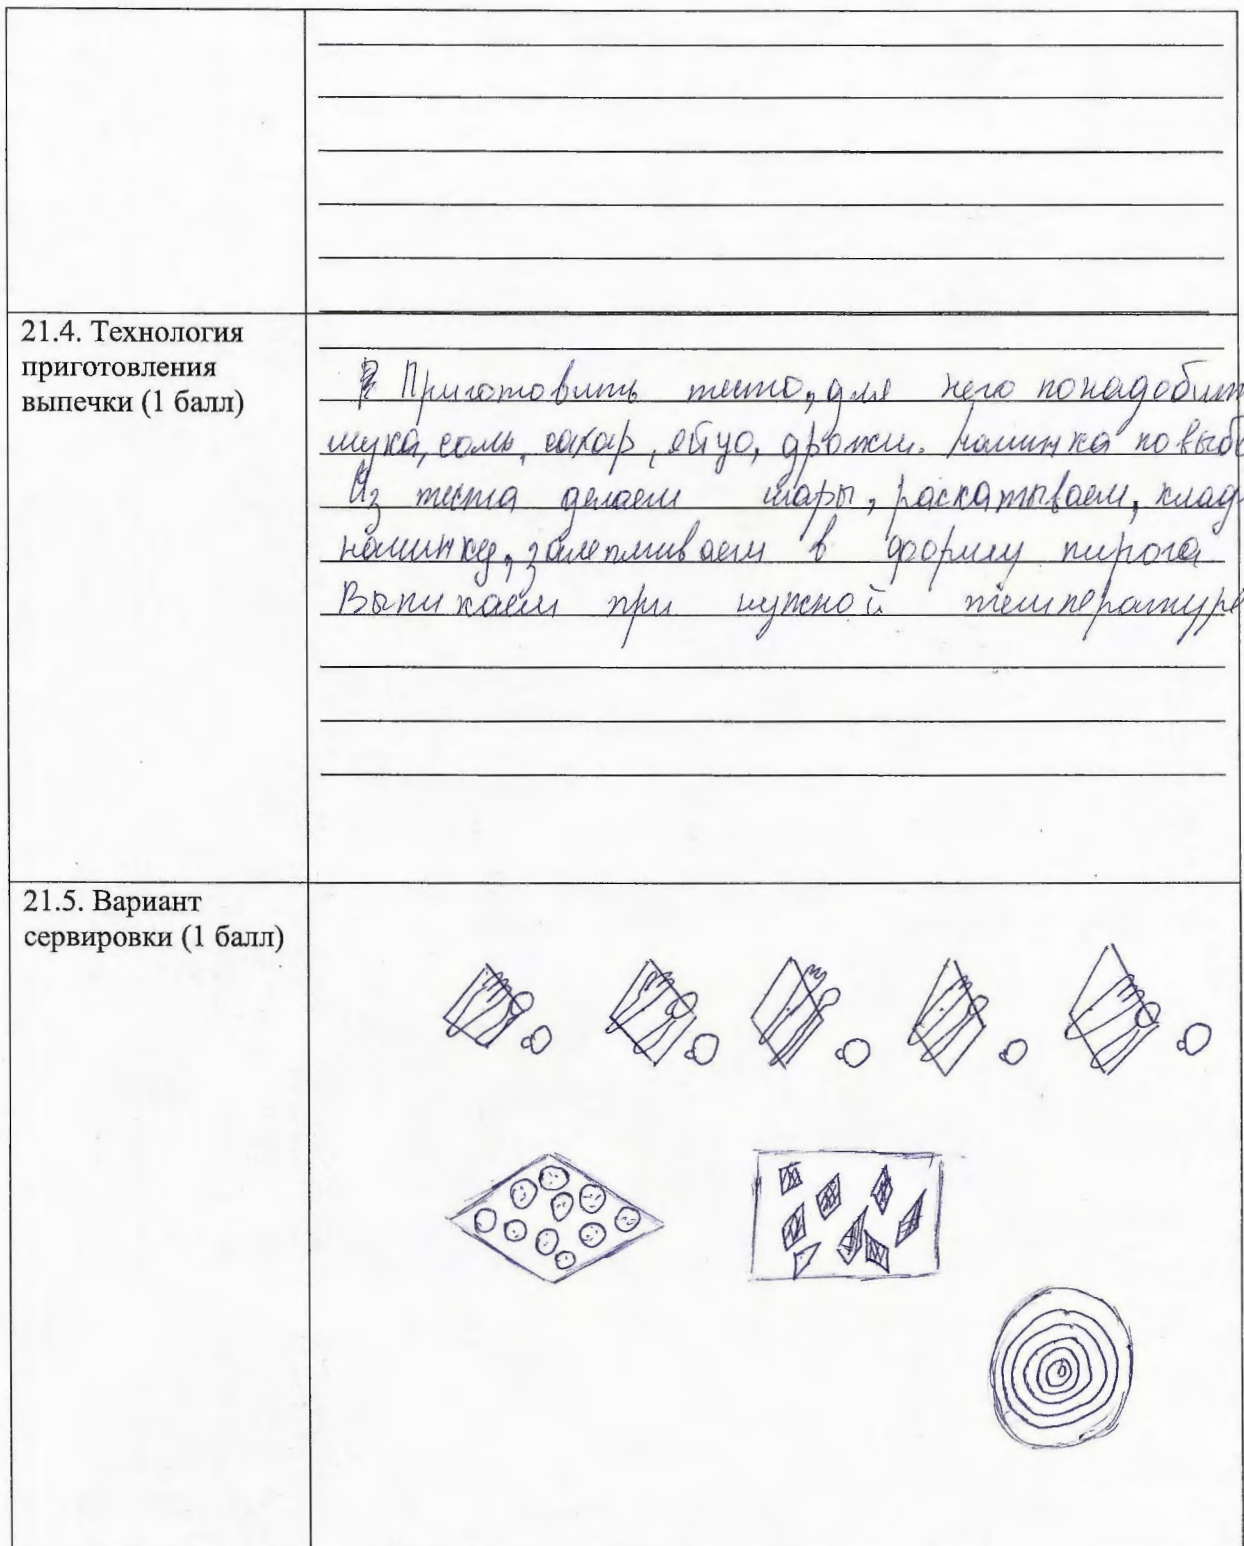 21.4. Технология
приготовления
выпечки (1 балл)
Приготовить тесто, для него понадобит
мука, соль, сахар, яйцо, дрожжи. начинка по выбо
Из теста делаем шары, раскатываем, клад
начинку, залепливаем в форму пирога
Выпикаем при нужной температуре
21.5. Вариант
сервировки (1 балл)